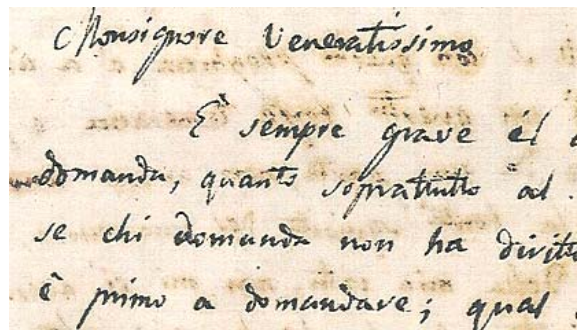 Monsignore Veneratissimo
È sempre grave él
domanda, quanto soprattutto al
se chi domanda non ha diritto
è primo a domandare; qual